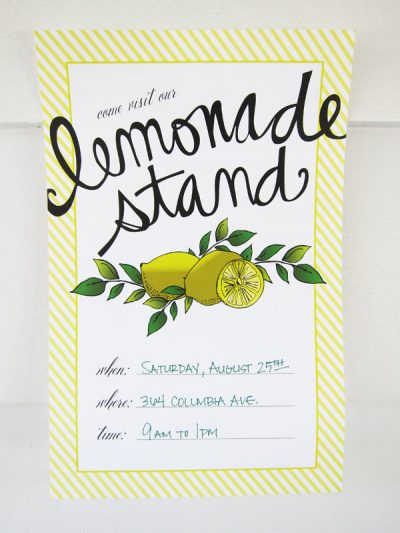 come visit our
lemonade
stand
when: SATURDAY, AUGUST 25TH
where: 364 COLUMBIA AVE.
time: 9AM TO 1PM